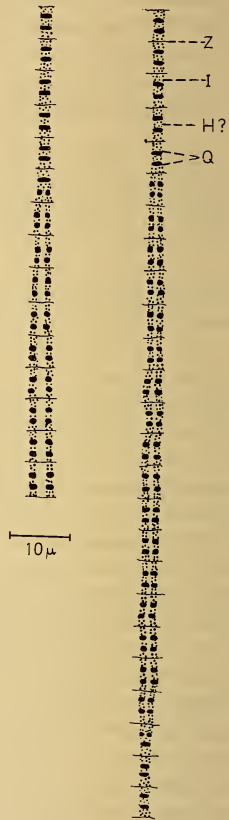 Z
I
H?
Q
10 μ